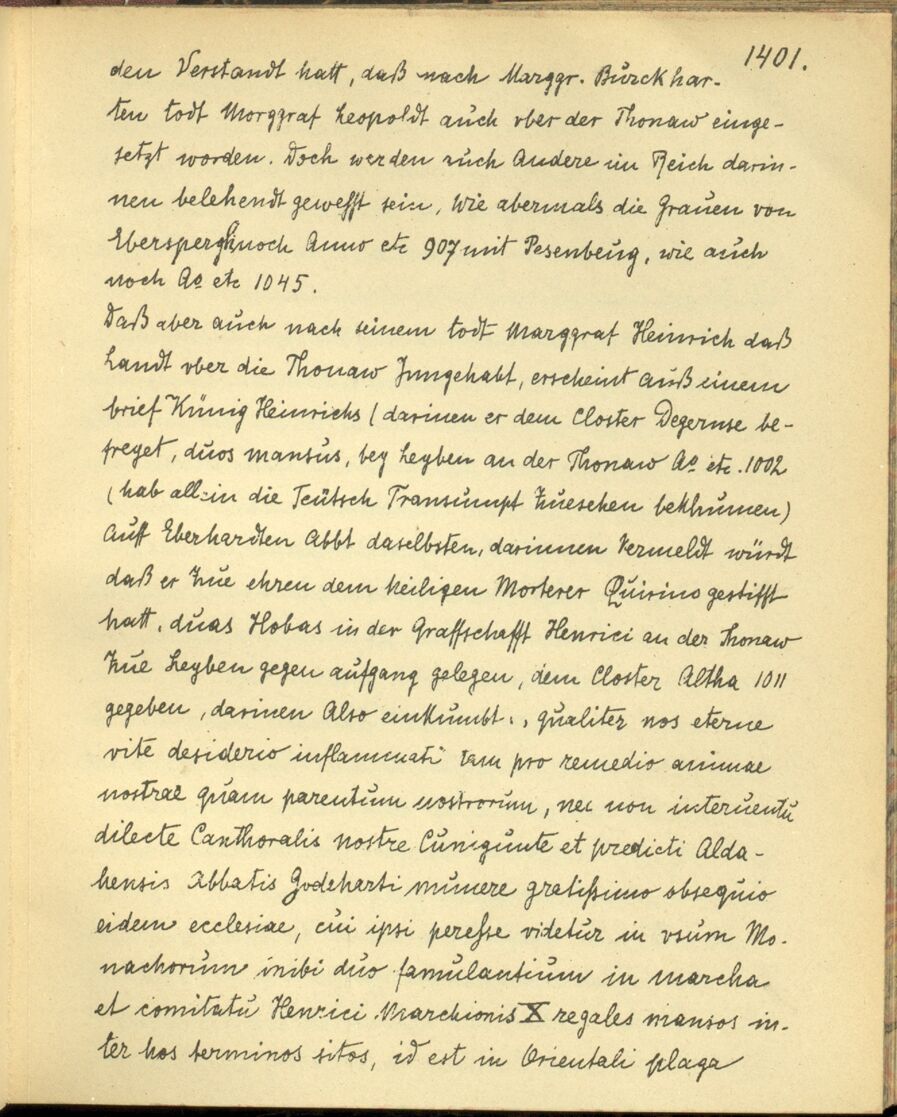 1401.
den Verstandt hatt, daß nach Marggr. Burckhar-
ten todt Morggraf Leopoldt auch vber der Thonaw einge-
setzt worden. Doch werden auch Andere im Reich darin-
nen belehendt gewesst sein, wie abermals die Grauen von
Ebersperg noch Anno etc 907 mit Pesenbeug, wie auch
noch Ao etc 1045.
Daß aber auch nach seinem todt Marggraf Heinrich daß
Landt vber die Thonaw Jnngehabt, erscheint auß einem
brief Künig Heinrichs (darinen er dem Closter Degernse be-
freyet, duos mansus, bey Leyben an der Thonaw Ao etc. 1002
(hab allein die Teütsch Transumpt zuesehen bekhumen)
Auff Eberhardten Abbt daselbsten, darinnen vermeldt würdt
daß er zue ehren dem heiligen Morterer Quirino gestifft
hatt, duas Hobas in der Graffschafft Henrici an der Thonaw
zue Leyben gegen aufgang gelegen, dem Closter Altha 1011
gegeben, darinen Also einkumbt:, qualiter nos eterne
vite desiderio inflammati tam pro remedio animae
nostrae quam parentum nostrorum, nec non interuentu
dilecte Canthoralis nostre Cunigunte et predicti Alda-
hensis Abbatis Godeharti munere gratissimo obsequio
eidem ecclesiae, cui ipsi peresse videtur in vsum Mo-
nachorum inibi duo famulantium in marcha
et comitatu Henrici Marchionis X regales mansos in-
ter hos terminos sitos, id est in Orientali plaga